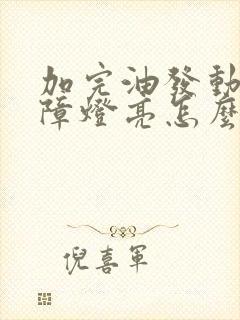 加完油發動
障燈亮怎麼
倪喜軍